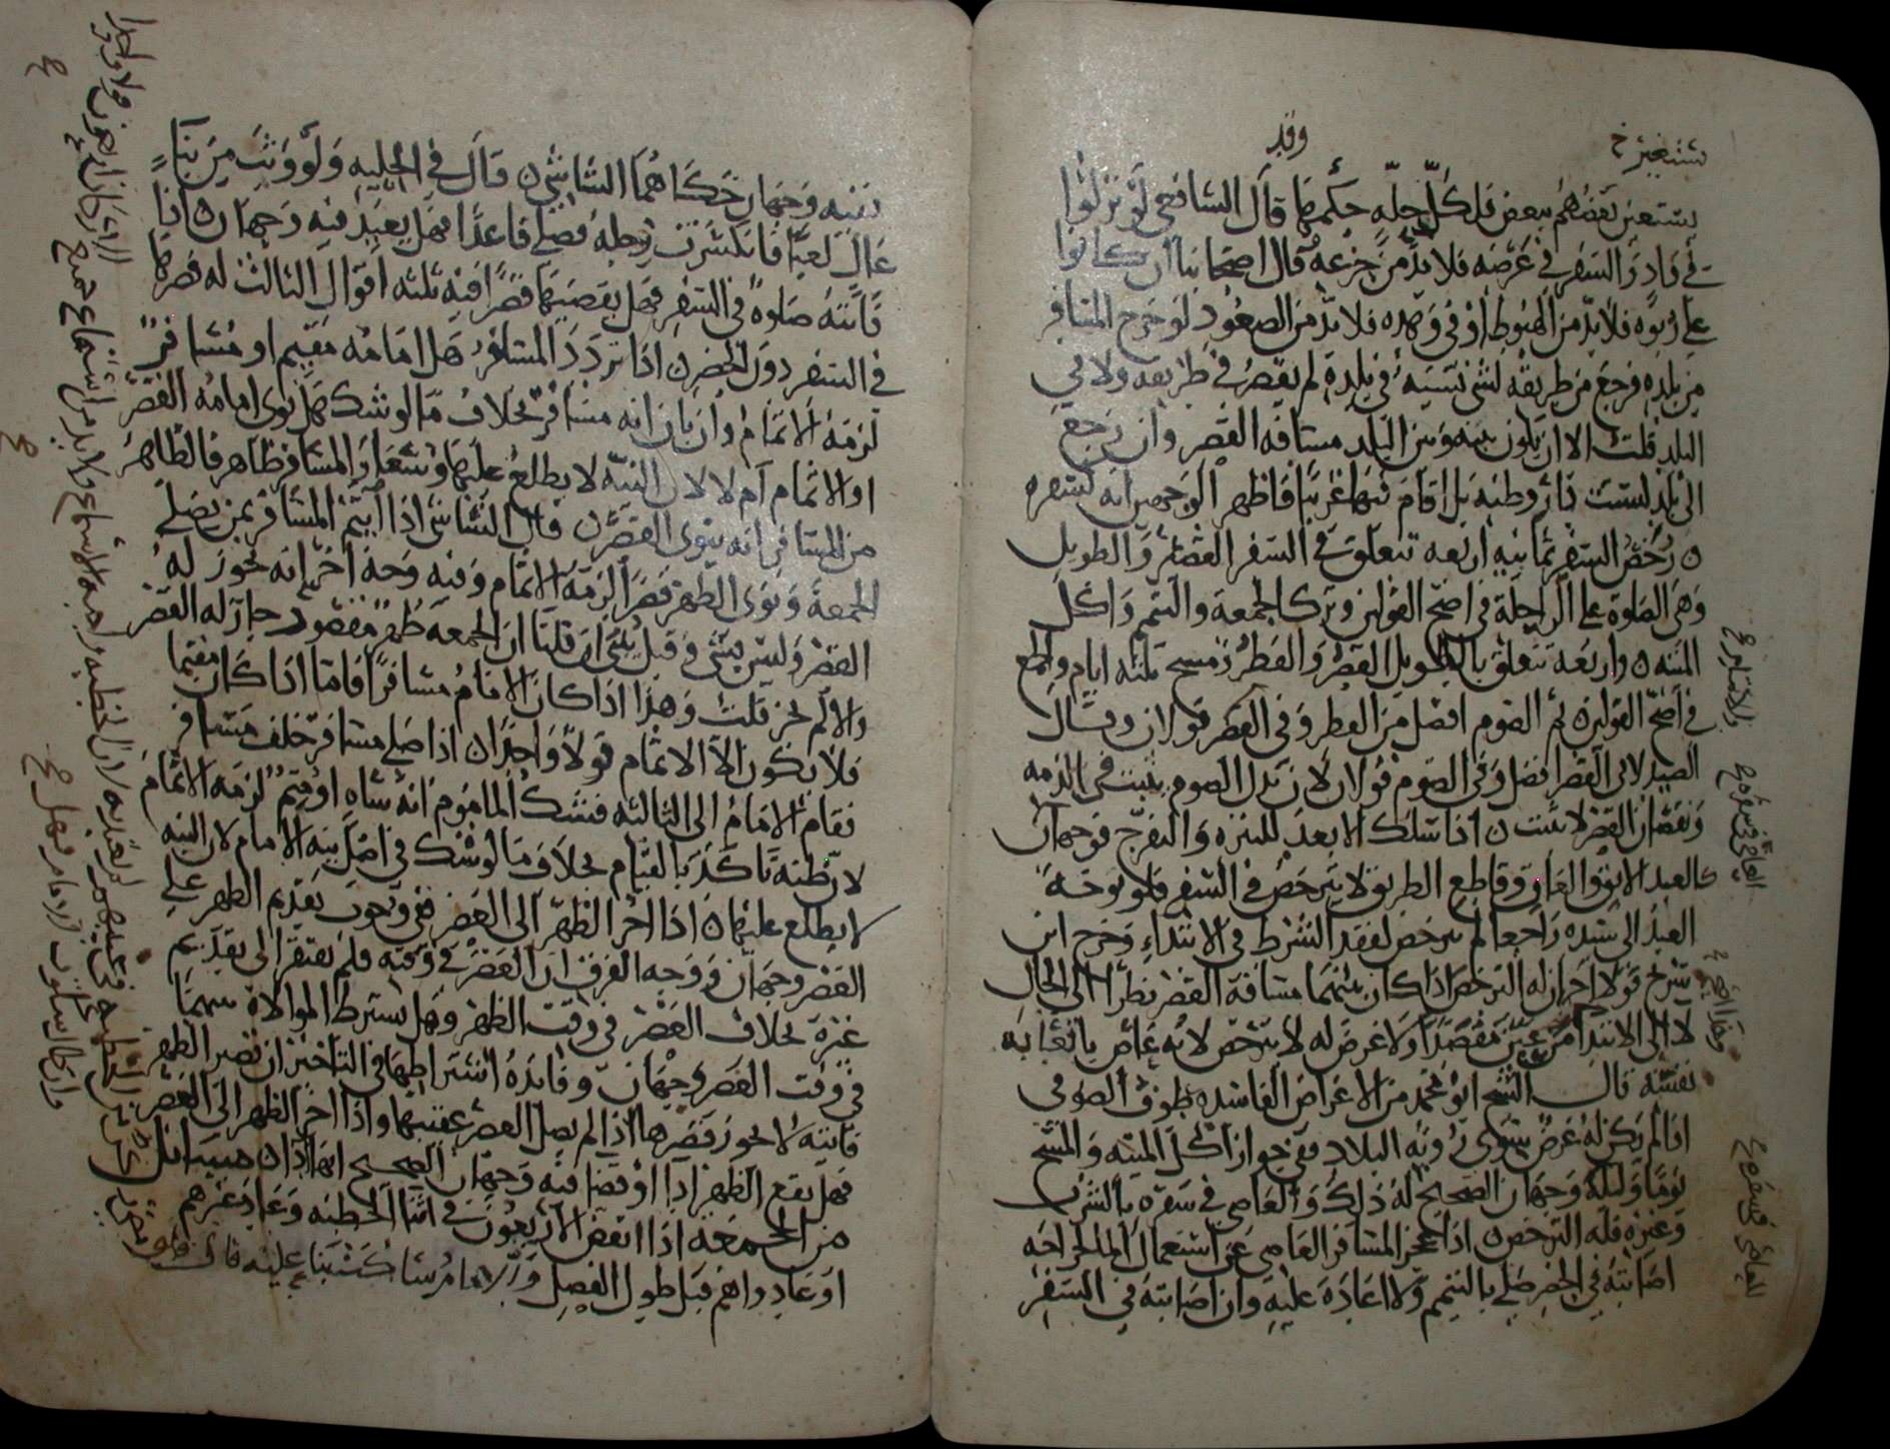 يستعين بعضهم ببعض فلكل حلة حكمها قال الشافعي لو نزلوا
في وادٍ والسفر في عرضه فلا بد من جزعه قال أصحابنا إن كانوا
على ربوة فلا بد من الهبوط أو في وهدة فلا بد من الصعود لو خرج المسافر
من بلده فرجع من طريقه لشيء نسيه في بلده لم يقصر في طريقه ولا في
البلد قلت إلا أن يكون بينه وبين البلد مسافة القصر وإن رجع
إلى بلد ليست دار وطنه بل أقام بها غريبا فأظهر الوجهين أنه كسفره
رخص السفر ثمانية أربعة تتعلق في السفر القصير والطويل
وهي الصلوة على الراحلة في أصح القولين وترك الجمعة والتيمم وأكل
الميتة وأربعة تتعلق بالطويل القصر والفطر ومسح ثلثة أيام والجمع
في أصح القولين ثم الصوم أفضل من الفطر وفي القصر قولان وقال
الصيدلاني القصر أفضل وفي الصوم قولان لأن بدل الصوم يثبت في الذمة
ونقصان القصر لا يثبت إذا سلك الأبعد للتنزه والتفرج فوجهان
كالعبد الآبق والعاق وقاطع الطريق لا يترخص في السفر فلو توجه
العبد إلى سيده راجعا لم يترخص لفقد الشرط في الابتداء وخرج ابن
سريج قولا آخر أن له الترخص إذا كان بينهما مسافة القصر نظرا إلى الحال
لا إلى الابتدا من عين مقصدا ولا غرض له لا يترخص لأنه عاص باتعابه
نفسه قال الشيخ أبو محمد من الأغراض الفاسدة طوف الصوفي
إذا لم يكن له غرض سوى رؤية البلاد ففي جواز أكل الميتة والمسح
يوما وليلة وجهان الصحيح له ذلك والعاصي في سفره بالشرب
وغيره فله الترخص إذا عجز المسافر العاصي عن استعمال الما لجراحة
أصابته في الحضر صلى بالتيمم ولا إعادة عليه وإن أصابته في السفر
ففيه وجهان حكاهما الشاشي قال في الحلية ولو وثب من بناءٍ
عالٍ لعبا فانكسرت رجله فصلى قاعدا فهل يعيد فيه وجهان إذا
فاتته صلوة في السفر فهل يقضيها قصرا فيه ثلثة أقوال الثالث له قصرها
في السفر دون الحضر إذا تردد المسافر هل إمامه مقيم أو مسافر
لزمه الإتمام وإن بان أنه مسافر بخلاف ما لو شك هل نوى إمامه القصر
أو الإتمام أم لا لأن النية لا يطلع عليها وشعار المسافر ظاهر فالظاهر
من المسافر أنه ينوي القصر قال الشاشي إذا ايتم المسافر بمن يصلي
الجمعة ونوى الظهر قصرا لزمه الإتمام وفيه وجه آخر أنه يجوز له
القصر وليس بشيء وقيل يبنى إن قلنا إن الجمعة ظهر مقصور جاز له القصر
وإلا لم يجز قلت وهذا إذا كان الإمام مسافرا فأما إذا كان مقيما
فلا يكون إلا الإتمام قولا واحدا إذا صلى مسافر خلف مسافر
فقام الإمام إلى الثالثة فشك المأموم أنه ساهٍ أو متم لزمه الإتمام
لأن ظنه تأكد بالقيام بخلاف ما لو شك في أصل نية الإمام لأن النية
لا يطلع عليها إذا أخر الظهر إلى العصر ففي وجوب تقديم الظهر على
العصر وجهان ووجه الفرق أن العصر في وقته فلم يفتقر إلى تقديم
غيره بخلاف العصر في وقت الظهر وهل يشترط الموالاة بينهما
في وقت العصر وجهان وفايدة اشتراطها في التأخير أن تصير الظهر
فايتة لا يجوز قصرها إذا لم يصل العصر عقيبها وإذا أخر الظهر إلى العصر
فهل يقع الظهر أداءً أو قضا فيه وجهان الصحيح أنها أدا مسايل
من الجمعة إذا انفض الأربعون في أثنا الخطبة وعاد غيرهم
أو عادوا هم قبل طول الفصل والإمام ساكت بنا عليه